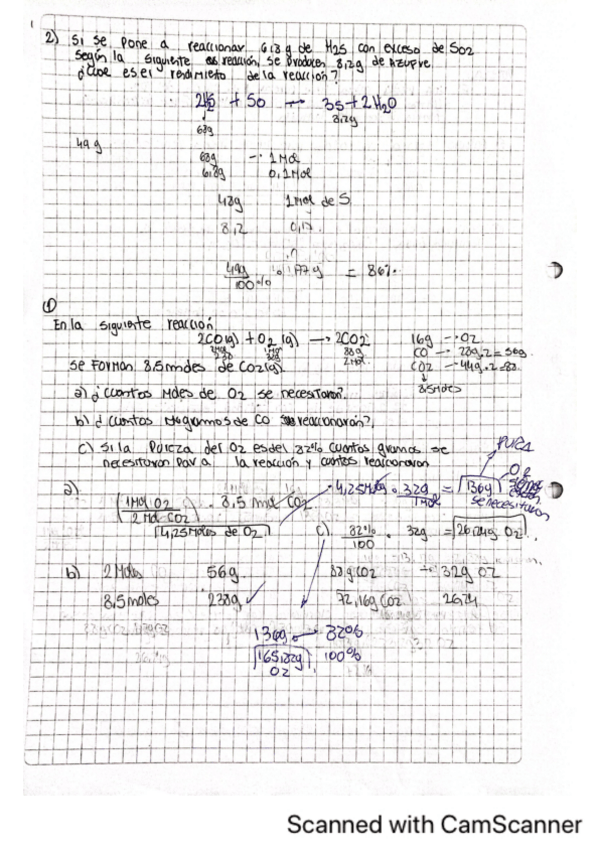 2) Si se pone a reaccionar 6,8 g de H2S con exceso de SO2
según la siguiente reacción, se producen 8,2g de AZUFRE
¿Cual es el rendimiento de la reacción?
+ SO → 3S + 2H2O
68g 8,2g
49g
68g → 1 Mol
6,8g 0,1 Mol
48g 1 Mol de S
8,2 0,17
49g
100% = 86%
①
En la siguiente reacción
2CO(g) + O2(g) → 2CO2 16g → O2
CO → 28g.2 = 56g
se Forman 8,5 moles de CO2(g). CO2 → 44g.2 = 88
8,5 Moles
a) ¿cuantos Moles de O2 se necesitaron?
b) ¿cuantos de CO reaccionaron?
c) si la Pureza del O2 es del 82% cuantos gramos se
necesitaron para la reacción y cuantos reaccionaron
PURA
a) (1 Mol O2 / 2 Mol CO2) . 8,5 mol CO2
4,25 Moles de O2
4,25 . 32g / 1 Mol = 136g O2
se necesitaron
c) 82% / 100 . 32g = 26,24g O2
b) 2 Moles 56g 88gCO2 → 32g O2
8,5 moles 238g 72,16g CO2 26,24
136g → 82%
165,82g 100%
O2
Scanned with CamScanner